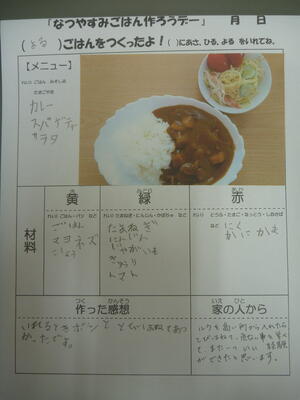 「なつやすみごはん作ろうデー」　月　日
(よる)ごはんをつくったよ！( )にあさ、ひる、よる をいれてね。
【メニュー】
れい) ごはん みそしる
たまごやき
カレー
スパゲティー
サラダ
き
黄
みどり
緑
あか
赤
材料
れい) ごはん・パン など
れい) たまねぎ・にんじん・かぼちゃ など
れい) とうふ・たまご・なっとう・しおさば など
ごはん
マヨネズ
こしょう
たまねぎ
にんじん
じゃがいも
きゅうり
トマト
にく
かにかま
つく かんそう
作った感想
いえ ひと
家の人から
いれるときボンと
かったです。
ルウを高い所から入れたら
とびはねて、危ない事を覚え
て、また一ついい経験
ができたと思います。